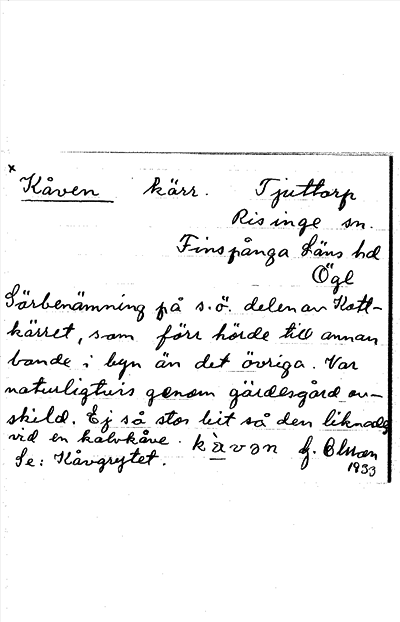 x
Kåven kärr. Tjuttorp
Risinge sn.
Finspånga Läns hd
Ögl
Särbenämning på s.ö. delen av Katt-
kärret, som förr hörde till annan
bonde i byn än det övriga. Var
naturligtvis genom gärdesgård av-
skild. Ej så stor bit så den liknades
vid en kalvkåve. kàvən
Se: Kåvgrytet. 1933